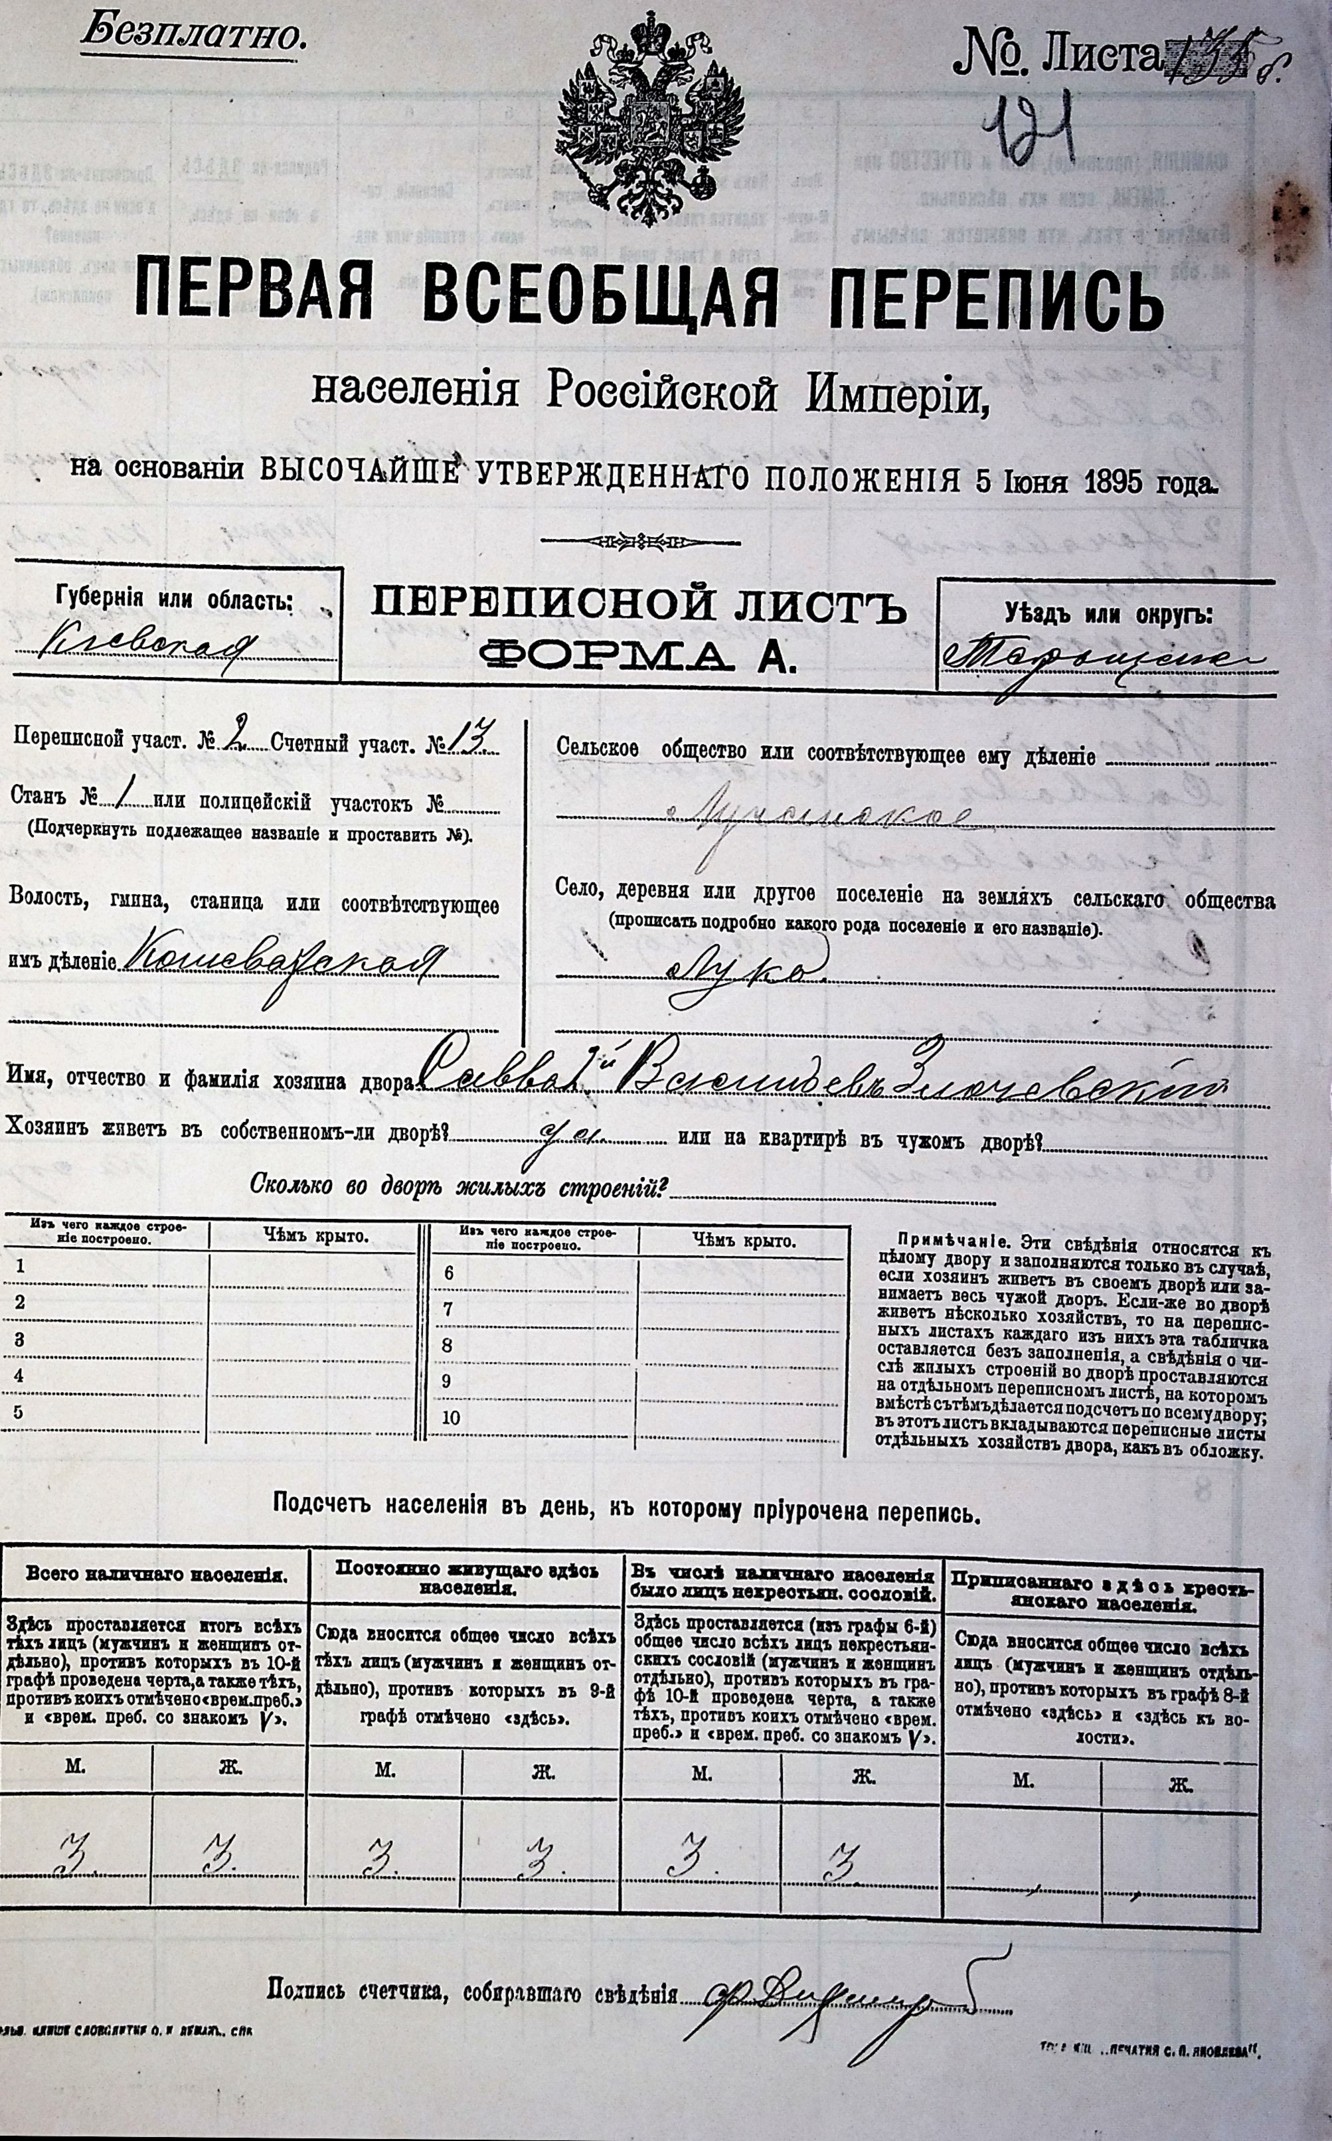 Безплатно.
№ Листа 135 б.
121
ПЕРВАЯ ВСЕОБЩАЯ ПЕРЕПИСЬ
населенія Россійской Имперіи,
на основаніи ВЫСОЧАЙШЕ УТВЕРЖДЕННАГО ПОЛОЖЕНІЯ 5 Іюня 1895 года.
Губернія или область:
Кіевская
ПЕРЕПИСНОЙ ЛИСТЪ
ФОРМА А.
Уѣздъ или округъ:
Переписной участ. № 2 Счетный участ. № 13
Станъ № 1 или полицейскій участокъ №
(Подчеркнуть подлежащее названіе и проставить №).
Волость, гмина, станица или соотвѣтствующее
имъ дѣленіе Кошеватская
Сельское общество или соотвѣтствующее ему дѣленіе
Лучанское
Село, деревня или другое поселеніе на земляхъ сельскаго общества
(прописать подробно какого рода поселеніе и его названіе).
Лука
Имя, отчество и фамилія хозяина двора Савва 2й Васильевъ Злочевскій
Хозяинъ живетъ въ собственномъ-ли дворѣ? да или на квартирѣ въ чужомъ дворѣ?
Сколько во дворѣ жилыхъ строеній?
Изъ чего каждое строе-
ніе построено.
Чѣмъ крыто.
1
2
3
4
5
Изъ чего каждое строе-
ніе построено.
Чѣмъ крыто.
6
7
8
9
10
Примѣчаніе. Эти свѣдѣнія относятся къ
цѣлому двору и заполняются только въ случаѣ,
если хозяинъ живетъ въ своемъ дворѣ или за-
нимаетъ весь чужой дворъ. Если-же во дворѣ
живетъ нѣсколько хозяйствъ, то на перепис-
ныхъ листахъ каждаго изъ нихъ эта табличка
оставляется безъ заполненія, а свѣдѣнія о чи-
слѣ жилыхъ строеній во дворѣ проставляются
на отдѣльномъ переписномъ листѣ, на которомъ
вмѣстѣ съ тѣмъ дѣлается подсчетъ по всему двору;
въ этотъ листъ вкладываются переписные листы
отдѣльныхъ хозяйствъ двора, какъ въ обложку.
Подсчетъ населенія въ день, къ которому пріурочена перепись.
Всего наличнаго населенія.
Здѣсь проставляется итогъ всѣхъ
тѣхъ лицъ (мужчинъ и женщинъ от-
дѣльно), противъ которыхъ въ 10-й
графѣ проведена черта, а также тѣхъ,
противъ коихъ отмѣчено «врем. преб.»
и «врем. преб. со знакомъ V».
М. Ж.
3. 3.
Постоянно живущаго здѣсь
населенія.
Сюда вносится общее число всѣхъ
тѣхъ лицъ (мужчинъ и женщинъ от-
дѣльно), противъ которыхъ въ 9-й
графѣ отмѣчено «здѣсь».
М. Ж.
3. 3.
Въ числѣ наличнаго населенія
было лицъ некрестьян. сословій.
Здѣсь проставляется (изъ графы 6-й)
общее число всѣхъ лицъ некрестьян-
скихъ сословій (мужчинъ и женщинъ
отдѣльно), противъ которыхъ въ гра-
фѣ 10-й проведена черта, а также
тѣхъ, противъ коихъ отмѣчено «врем.
преб.» и «врем. преб. со знакомъ V».
М. Ж.
3. 3
Приписаннаго здѣсь кресть-
янскаго населенія.
Сюда вносится общее число всѣхъ
лицъ (мужчинъ и женщинъ отдѣль-
но), противъ которыхъ въ графѣ 8-й
отмѣчено «здѣсь» и «здѣсь къ во-
лости».
М. Ж.
Подпись счетчика, собиравшаго свѣдѣнія
ПЕЧАТНЯ С. П. ЯКОВЛЕВА".